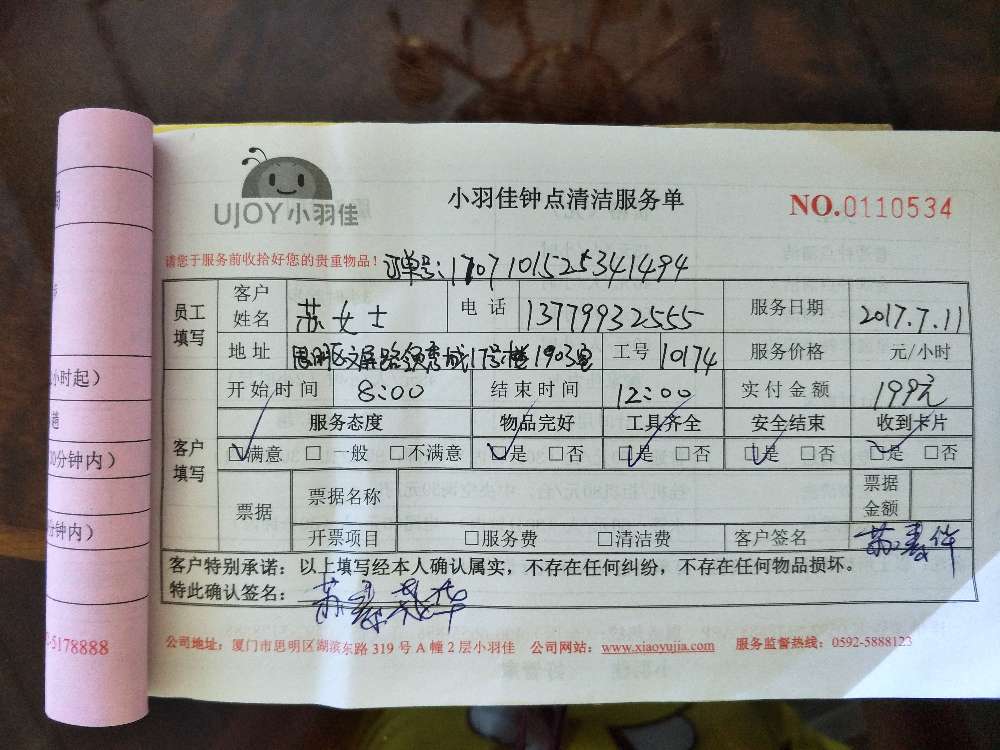 UJOY小羽佳
小羽佳钟点清洁服务单
NO.0110534
请您于服务前收拾好您的贵重物品！ 订单号：1707101525341494
员工填写 客户姓名 苏女士 电话 13779932555 服务日期 2017.7.11
地址 思明区文屏路领秀城17号楼1903室 工号 10174 服务价格 元/小时
客户填写 开始时间 8:00 结束时间 12:00 实付金额 199元
服务态度 物品完好 工具齐全 安全结束 收到卡片
☑满意 □一般 □不满意 ☑是 □否 ☑是 □否 ☑是 □否 ☑是 □否
票据 票据名称 票据金额
开票项目 □服务费 □清洁费 客户签名
客户特别承诺：以上填写经本人确认属实，不存在任何纠纷，不存在任何物品损坏。
特此确认签名：
公司地址：厦门市思明区湖滨东路319号A幢2层小羽佳 公司网站：www.xiaoyujia.com 服务监督热线：0592-5888123
小时起）
0分钟内）
分钟内）
-5178888